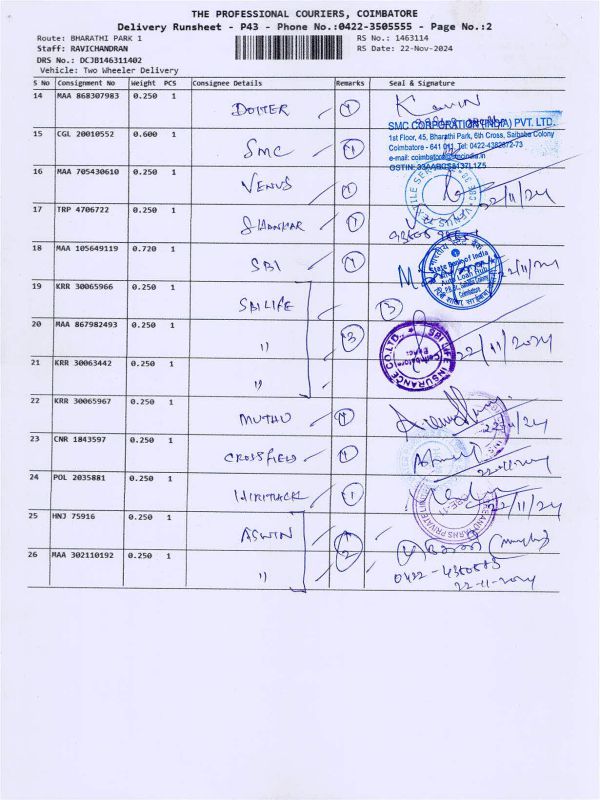 THE PROFESSIONAL COURIERS, COIMBATORE
Delivery Runsheet - P43 - Phone No.:0422-3505555 - Page No.:2
Route: BHARATHI PARK 1 RS No.: 1463114
Staff: RAVICHANDRAN RS Date: 22-Nov-2024
DRS No.: DCJB146311402
Vehicle: Two Wheeler Delivery
S No Consignment No Weight PCS Consignee Details Remarks Seal & Signature
14 MAA 868307983 0.250 1 1 Kavin
15 CGL 20010552 0.600 1 SMC 1
SMC CORPORATION (INDIA) PVT. LTD.
1st Floor, 45, Bharathi Park, 6th Cross, Saibaba Colony
Coimbatore - 641 011. Tel: 0422-4382872-73
e-mail: coimbatore@smcindia.in
16 MAA 705430610 0.250 1 VENUS 1 22/11/24
17 TRP 4706722 0.250 1 SHANKAR 1
18 MAA 105649119 0.720 1 SBI 1
State Bank of India
Auto Loan Hub
Coimbatore
19 KRR 30065966 0.250 1 SBI LIFE 3
20 MAA 867982493 0.250 1 " 3 22/11/2024
SBI LIFE INSURANCE CO.LTD.,
21 KRR 30063442 0.250 1 "
22 KRR 30065967 0.250 1 MUTHU 1 22/11/24
23 CNR 1843597 0.250 1 CROSSFIELD 1 22/11/2024
24 POL 2035881 0.250 1 1 22/11/24
25 HNJ 75916 0.250 1 ASWIN 2
26 MAA 302110192 0.250 1 "
22-11-2024